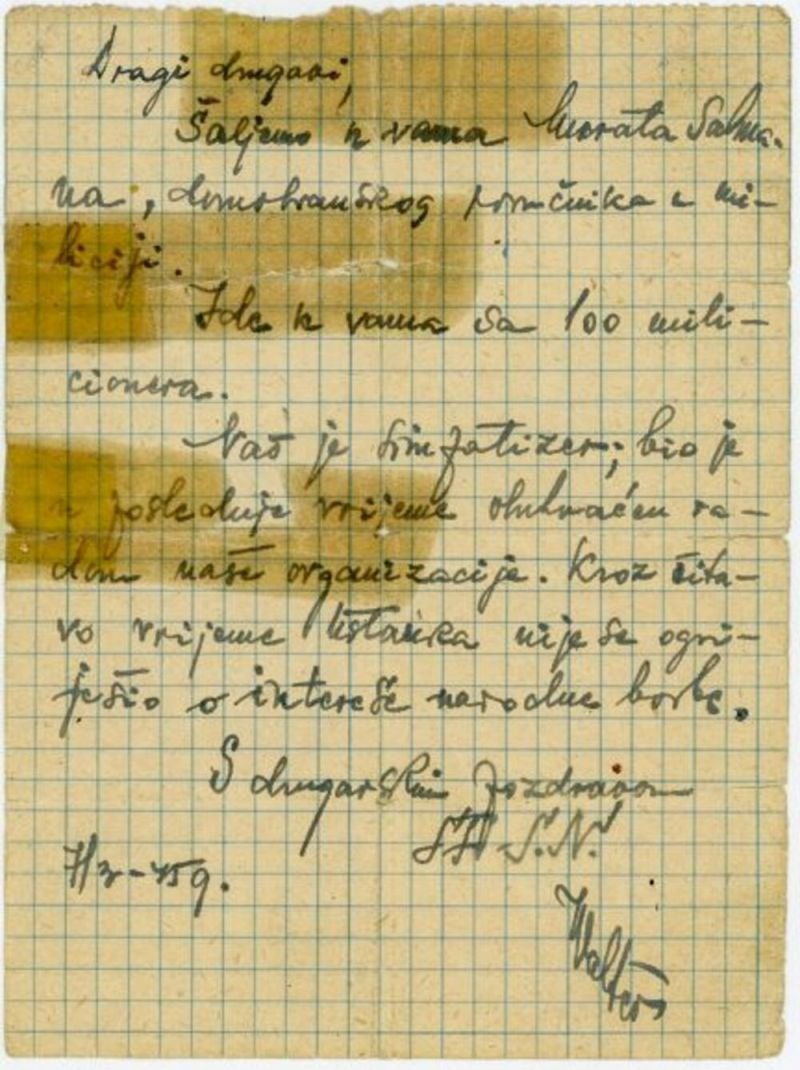 Dragi drugovi,
Šaljemo k vama Murata Salma-
na, domobranskog poručnika u mi-
liciji.
Ide k vama sa 100 mili-
cionera.
Naš je simpatizer; bio je
u posleduje vrijeme obuhvaćen ra-
dom naše organizacije. Kroz čita-
vo vrijeme Ustanka nije se ogri-
ješio o interese narodne borbe.
S drugarskim pozdravom
S.N.
7/3-45g.
Walter